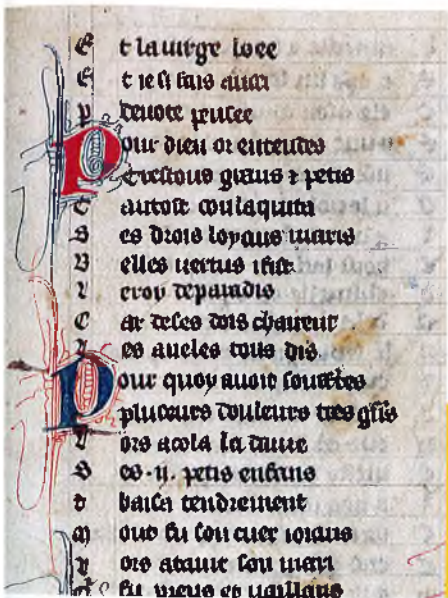 E t la uirge loee
E t ie si fais aussi
P deuote pensee
Pour dieu or entendes
E trestous grans z petis
E tantost con laquita
S es drois loyaus maris
B elles uertus i fist
L e roy de paradis
C ar de ses dois cheurent
L es aueles tous dis
Pour quoy auoit souffertes
plusours douleurs tres gñs
L ors acola la dame
S es .ij. petis enfans
E t baisa tendrement
M out fu son cuer ioians
L ors atant son mari
Q fu preus et uaillans